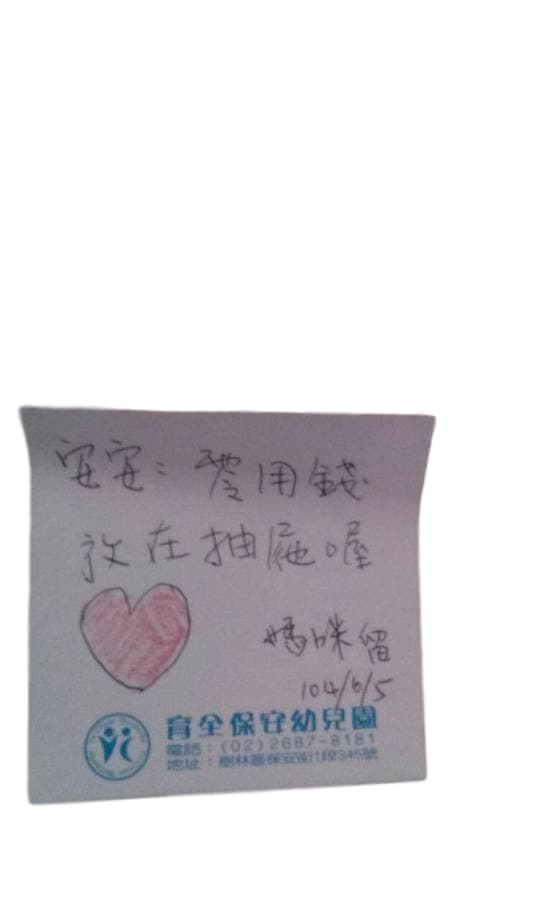 安安：零用錢
放在抽屜喔
媽咪留
104/6/5
育全保安幼兒園
電話：(02)2687-8181
地址：樹林區保安街1段345號